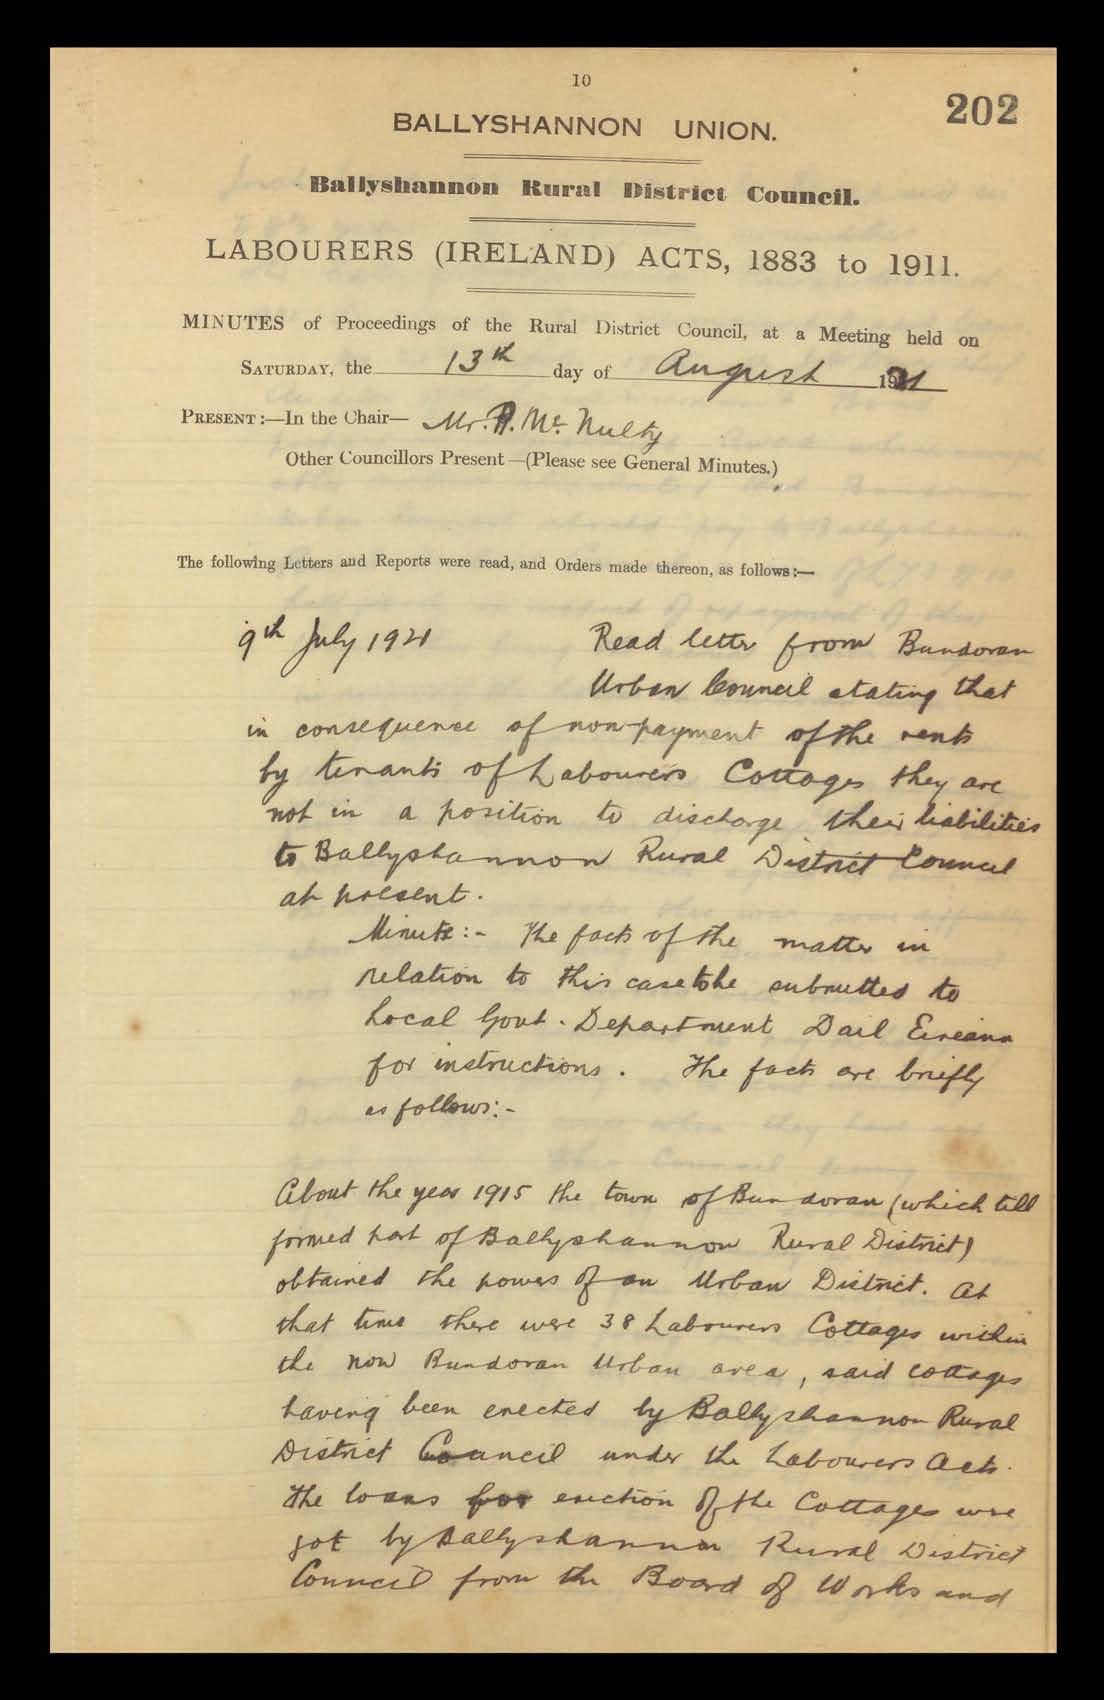 10
202
BALLYSHANNON UNION.
Ballyshannon Rural District Council.
LABOURERS (IRELAND) ACTS, 1883 to 1911.
MINUTES of Proceedings of the Rural District Council, at a Meeting held on
SATURDAY, the 13th day of August 1921
PRESENT:—In the Chair— Mr. P. Mc. Nulty
Other Councillors Present—(Please see General Minutes.)
The following Letters and Reports were read, and Orders made thereon, as follows:—
9th July 1921 Read letter from Bundoran
Urban Council stating that
in consequence of non-payment of the rents
by tenants of Labourers Cottages they are
not in a position to discharge their liabilities
to Ballyshannon Rural District Council
at present.
Minute:- The facts of the matter in
relation to this case to be submitted to
Local Govt. Department Dail Eireann
for instructions. The facts are briefly
as follows:-
About the year 1915 the town of Bundoran (which till
formed part of Ballyshannon Rural District)
obtained the powers of an Urban District. At
that time there were 38 Labourers Cottages within
the now Bundoran Urban area, said cottages
having been erected by Ballyshannon Rural
District Council under the Labourers Acts.
The loans for erection of the Cottages were
got by Ballyshannon Rural District
Council from the Board of Works and